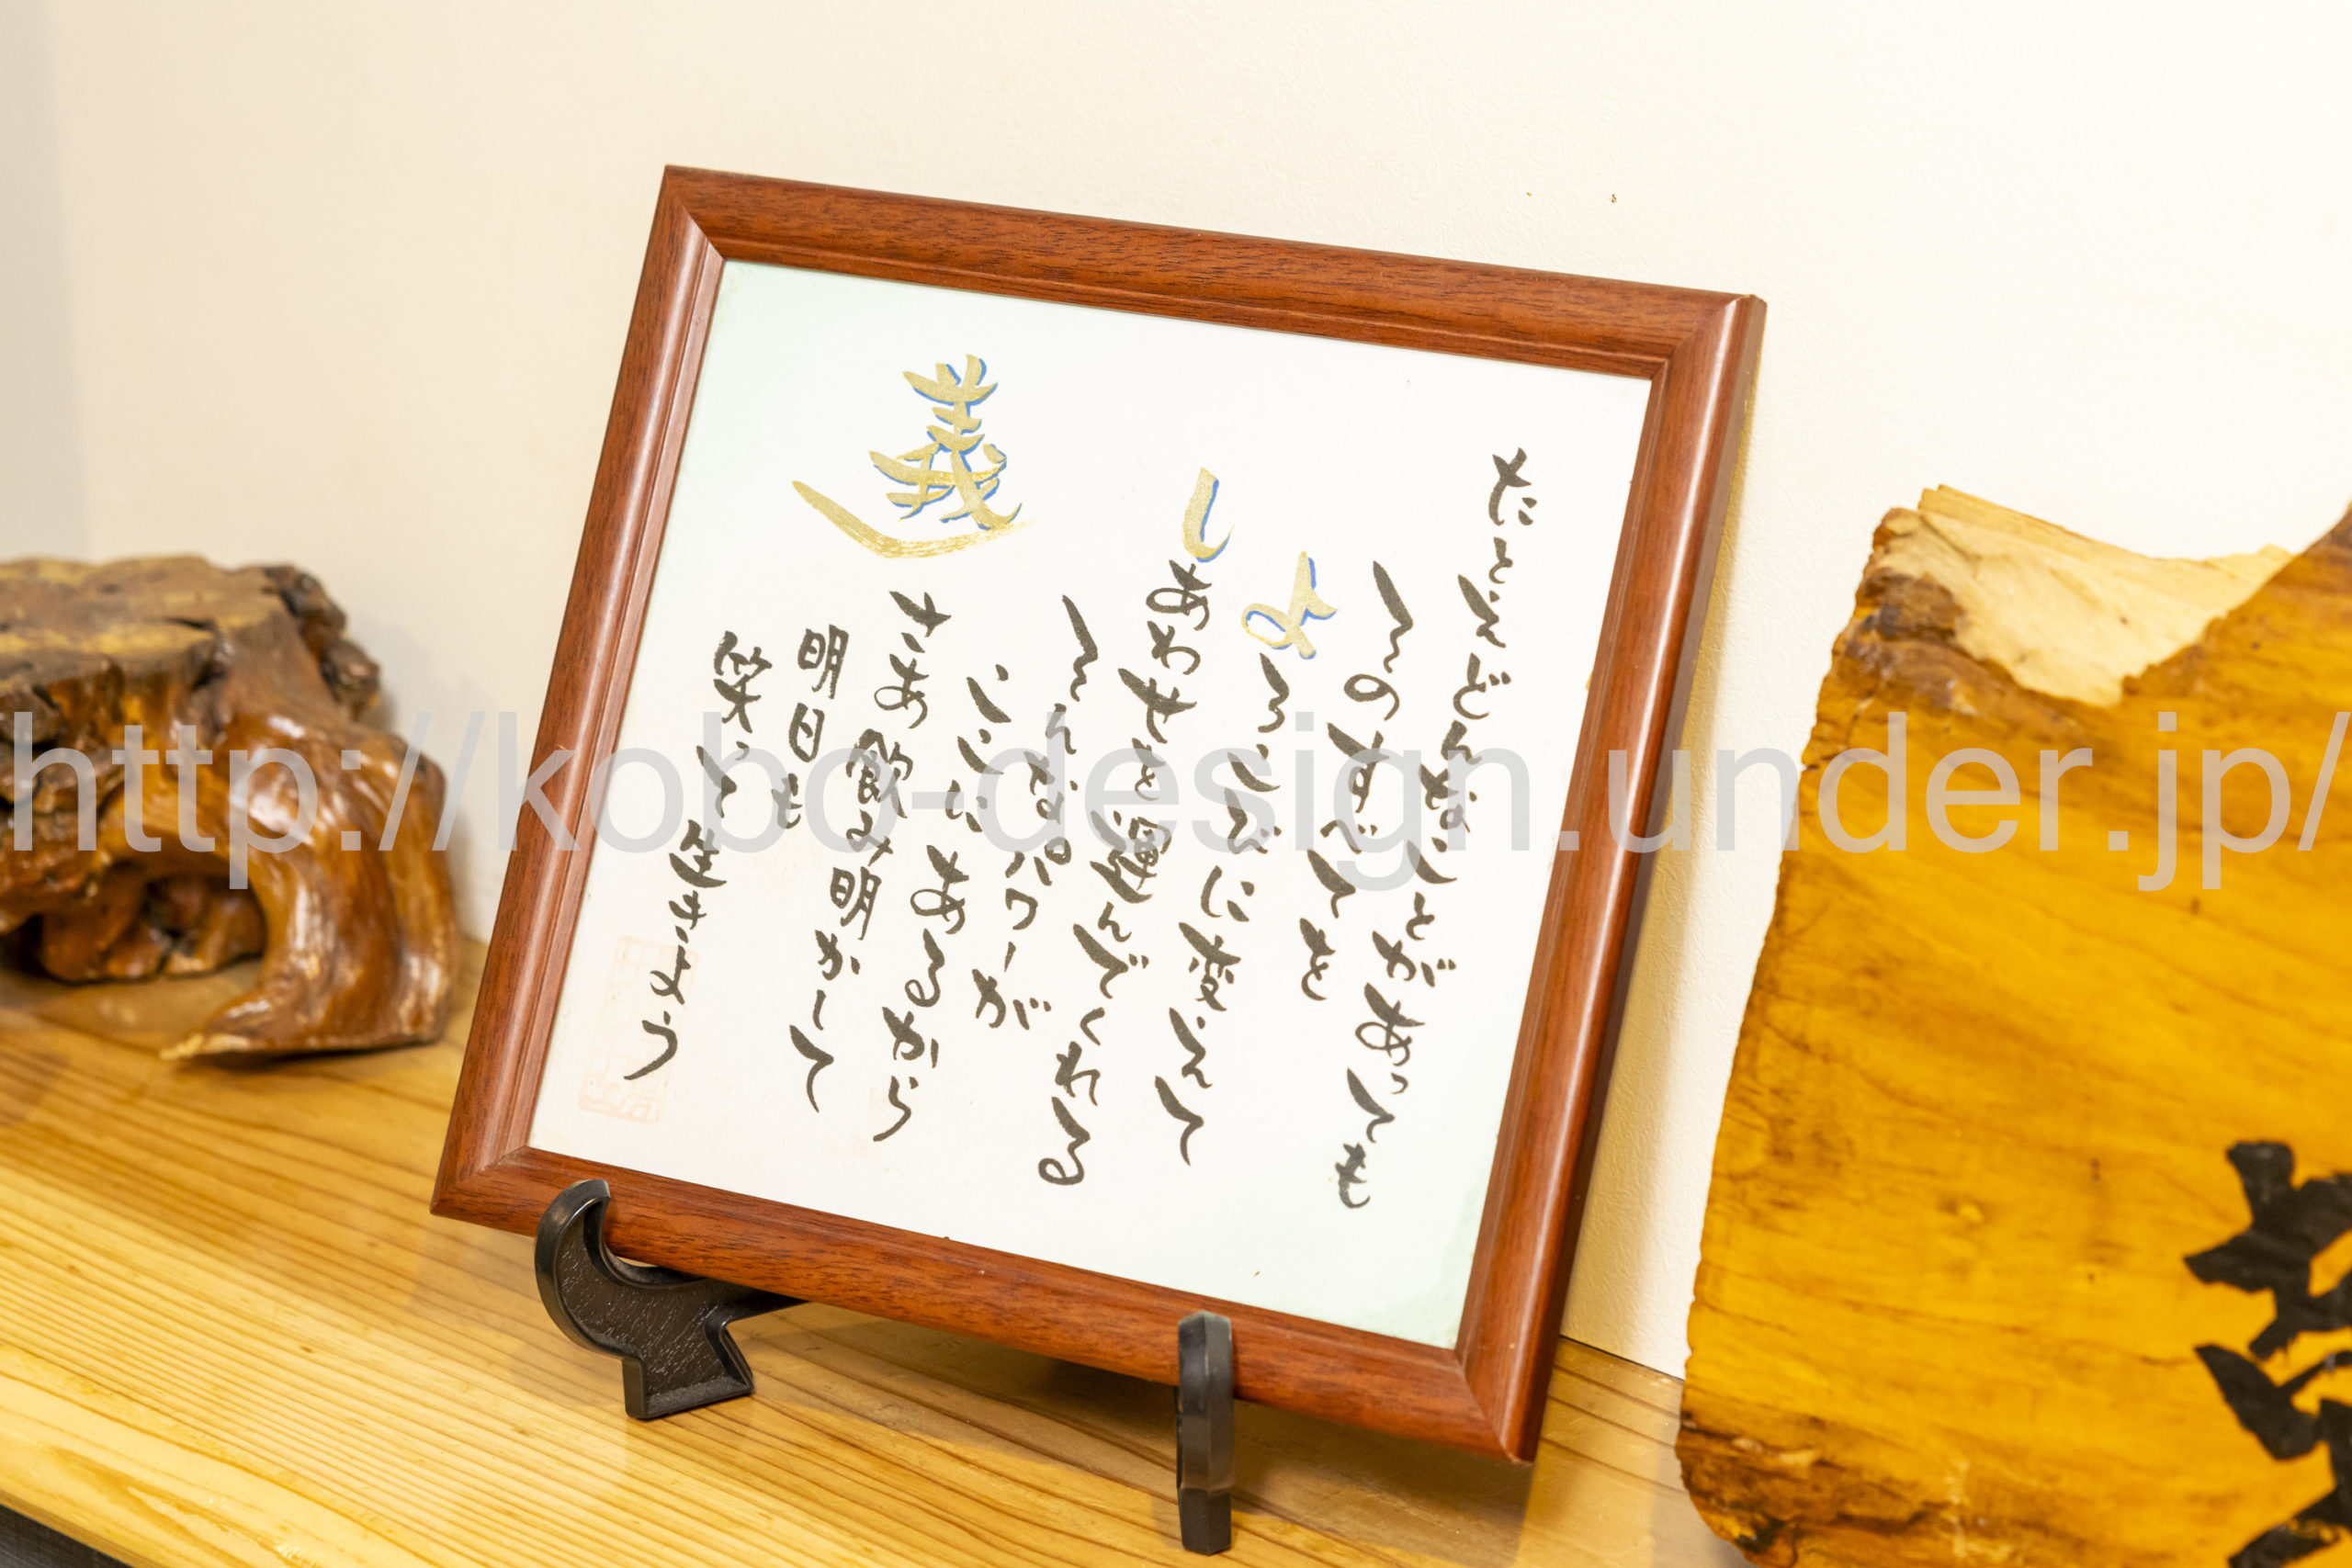 たとえどんなことがあっても
そのすべてを
よろこびに変えて
しあわせを運んでくれる
そんなパワーが
ここにあるから
義
さあ飲み明かして
明日も
笑って生きよう
http://kobo-design.under.jp/